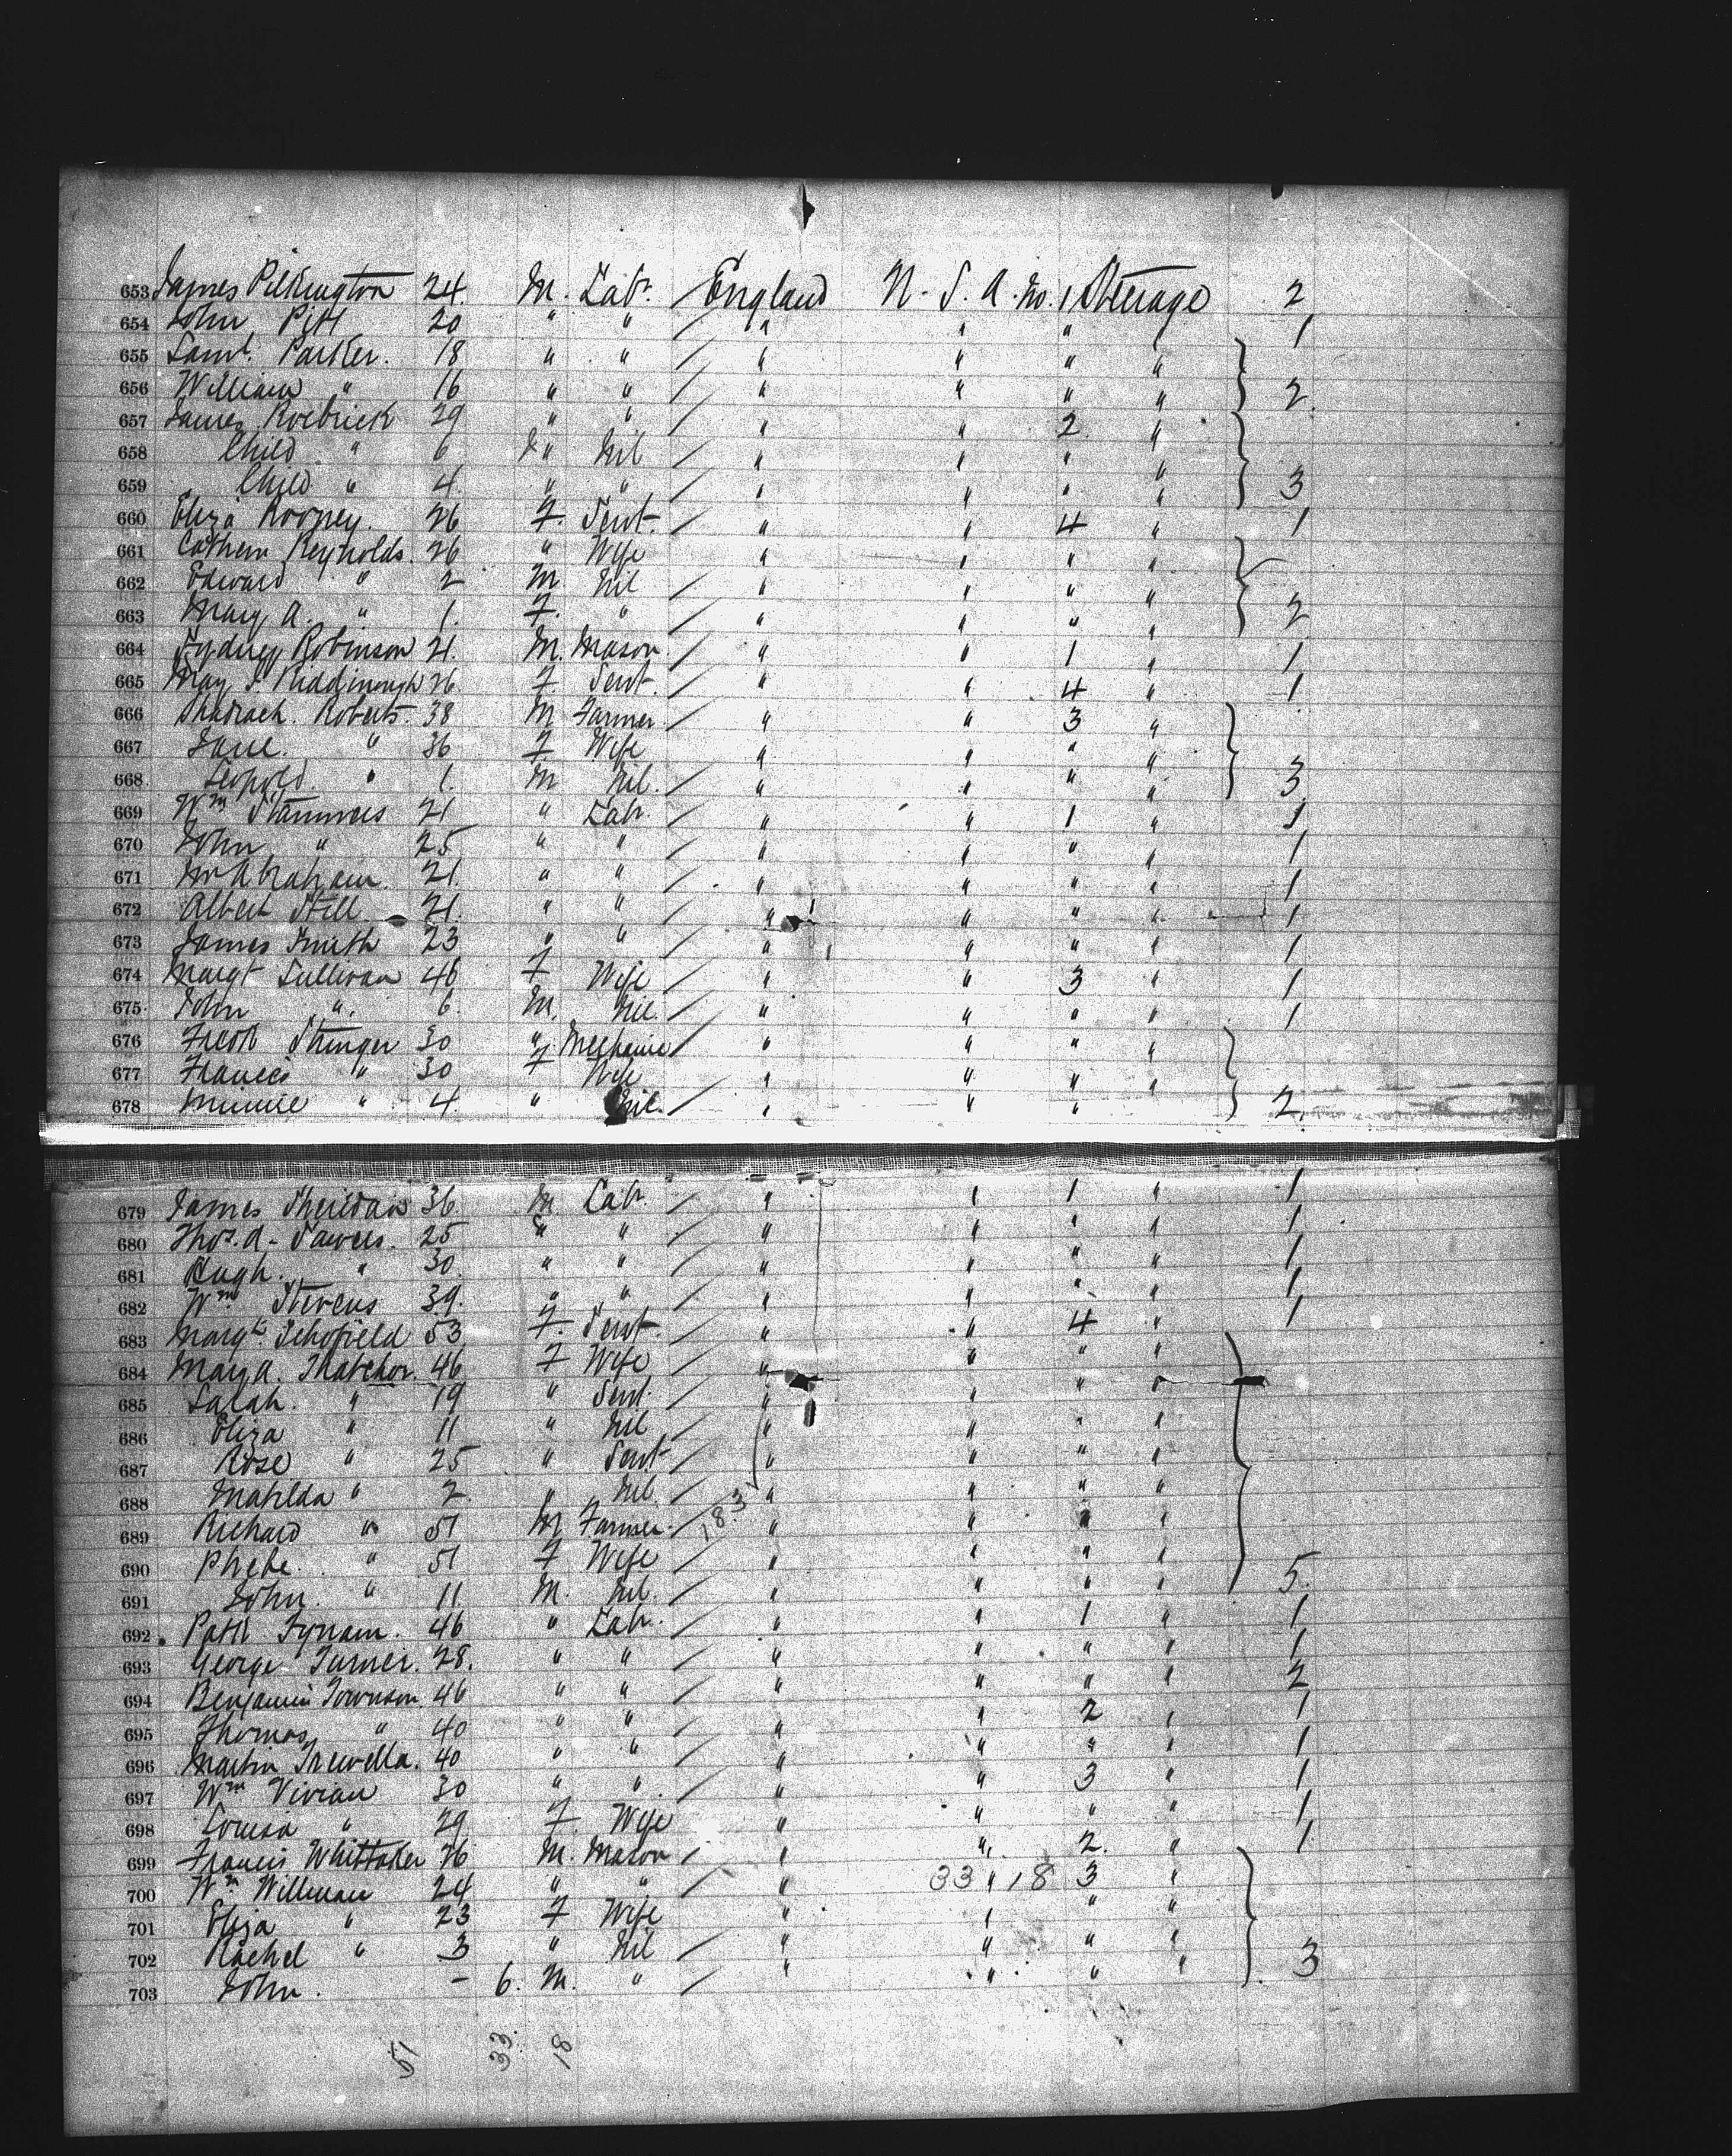 653 James Pilkington 24 M. Labr. / England U. S. A. No. 1 Steerage 2
654 John Pitt 20 " " / " " " 1
655 Saml. Parker. 18 " " / " " " "
656 William " 16 " " / " " " " 2
657 James Roebrick 29 " " / " " 2 "
658 Child " 6 " Nil / " " " "
659 Child " 4 " " / " " " " 3
660 Eliza Rooney. 26 F. Servt. / " " 4 " 1
661 Cathern Reynolds. 26 " Wife " " " "
662 Edward " 2 M Nil / " " " "
663 Mary A. " 1. F. " / " " " " 2
664 Sydney Robinson 21 M. Mason / " " 1 " 1
665 May J. 26 F. Servt. / " " 4 " 1
666 Shadrach. Roberts. 38 M Farmer / " " 3 "
667 Jane. " 36 F Wife " " " "
668 Leopold. " 1. M Nil. / " " " " 3
669 Wm Stammers 21 " Labr. / " " 1 " 1
670 John " 25 " " / " " " " 1
671 Abraham. 21. " " / " " " " 1
672 Albert Still 21. " " / " " " " 1
673 James Smith 23 " " / " " " " 1
674 Margt Sullivan 46 F Wife / " " 3 " 1
675 John " 6 M. Nil. / " " " " 1
676 Jacob Stringer 30 " Mechanic / " " " "
677 Francis " 30 F Wife " " " "
678 Minnie " 4 " Nil. / " " " 2
679 James Sheridan 36 M Labr / " " 1 " 1
680 Thos. A- Sawers. 25 " " / " " " " 1
681 Hugh. " 30 " " / " " " " 1
682 Wm Stevens 39. " " / " " " " 1
683 Margt. Schofield 53 F. Servt. / " " 4 " 1
684 Mary A. Thatcher. 46 F Wife / " " " "
685 Sarah. " 19 " Servt. / " " " "
686 Eliza " 11 " Nil / " " " "
687 Rose " 25 " Servt / " " " "
688 Matilda " 2 " Nil. / " " " "
689 Richard " 51 M Farmer. / 18.3 " " " "
690 Phebe. " 51 F Wife / " " " " 5.
691 John. " 11 M. Nil. / " " " "
692 Patk Tynam. 46 " Labr. / " " 1 " 1
693 George Turner. 28. " " / " " " " 1
694 Benjamin Townson 46 " " / " " " " 2
695 Thomas " 40 " " / " " 2 " 1
696 Martin Trewella. 40 " " / " " " " 1
697 Wm Vivian 30 " " / " " 3 " 1
698 Louisa " 29 F. Wife " " " " 1
699 Francis Whittaker 26 M. Mason / " " 2. " 1
700 Wm Willman 24 " " / " 33 " 18 3 "
701 Eliza " 23 F Wife " " " "
702 Rachel " 3 " Nil / " " " " 3
703 John. - 6. M. " / " " " "
51 33 18